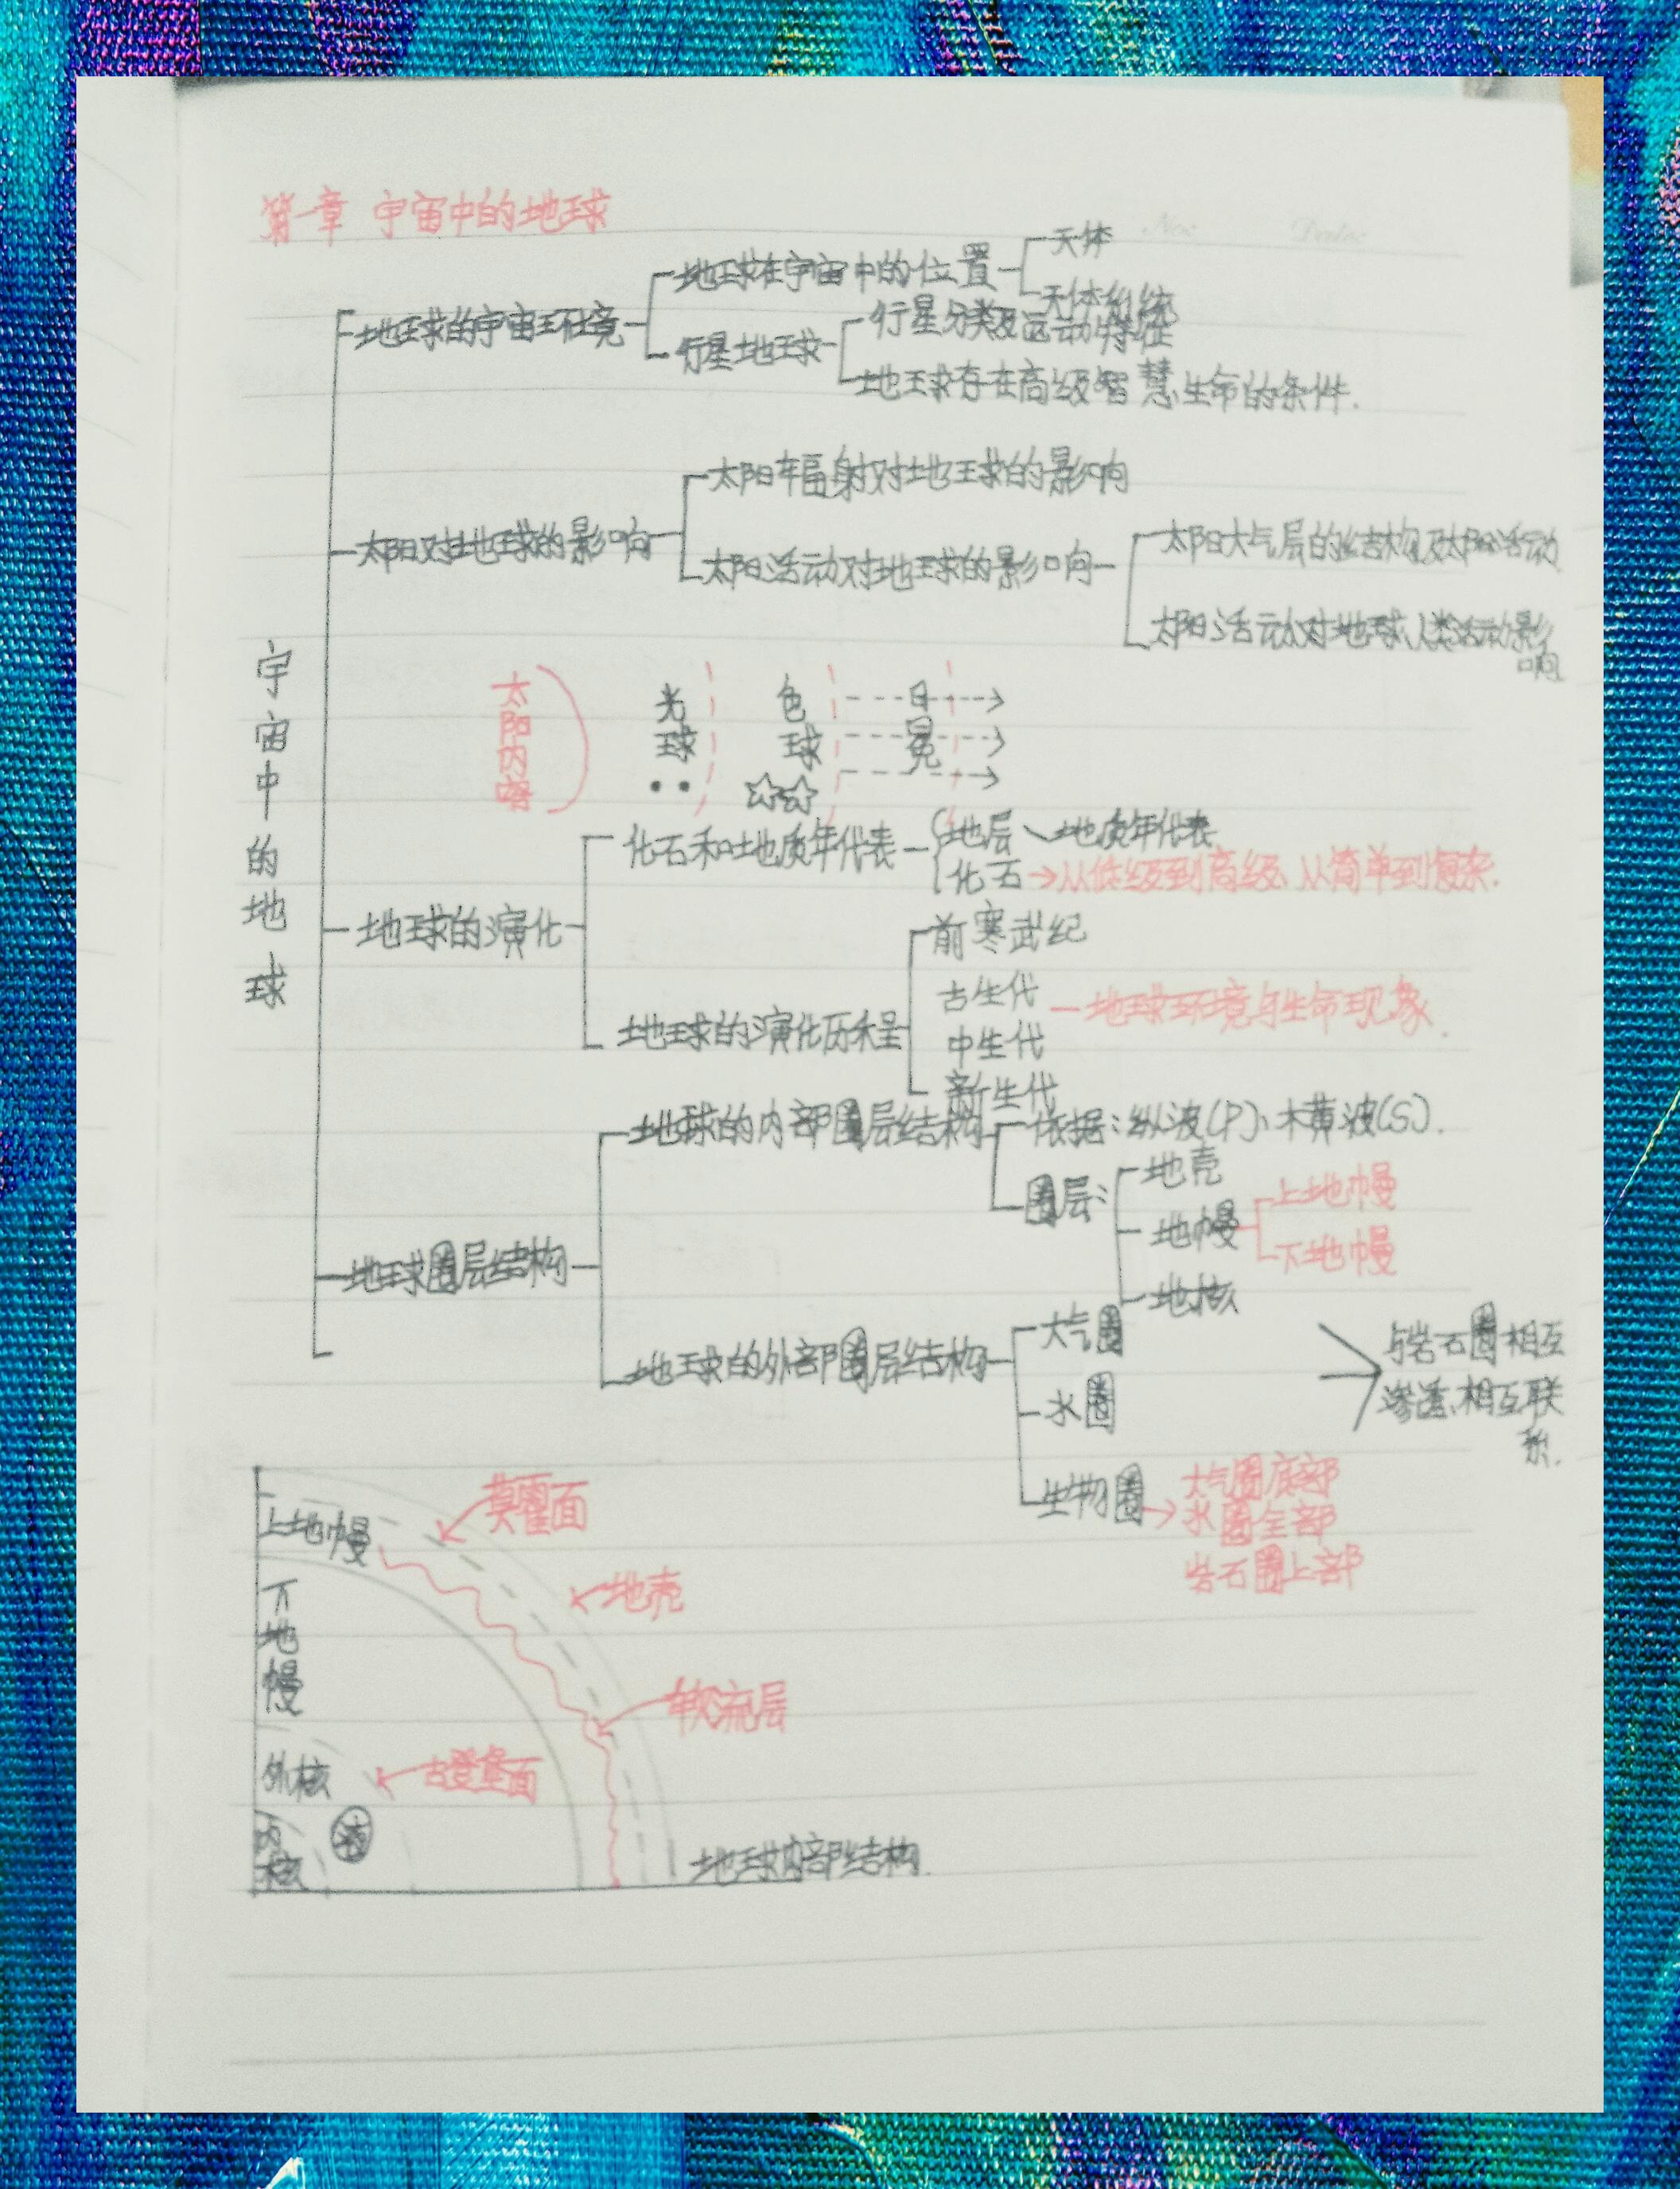 第一章 宇宙中的地球
宇宙中的地球
地球的宇宙环境
地球在宇宙中的位置
天体
天体系统
行星地球
行星分类及运动特征
地球存在高级智慧生命的条件.
太阳对地球的影响
太阳辐射对地球的影响
太阳活动对地球的影响
太阳大气层的结构及太阳活动
太阳活动对地球、人类活动影
响
太阳内部
光球
色球
日冕
地球的演化
化石和地质年代表
地层、地质年代表
化石→从低级到高级、从简单到复杂.
地球的演化历程
前寒武纪
古生代
中生代
新生代
地球环境与生命现象.
地球圈层结构
地球的内部圈层结构
依据:纵波(P)、横波(S).
圈层:
地壳
地幔
上地幔
下地幔
地核
地球的外部圈层结构
大气圈
水圈
生物圈→
大气圈底部
水圈全部
岩石圈上部
与岩石圈相互
渗透、相互联
系.
上地幔
下地幔
外核
内核
莫霍面
地壳
软流层
古登堡面
地球内部结构.